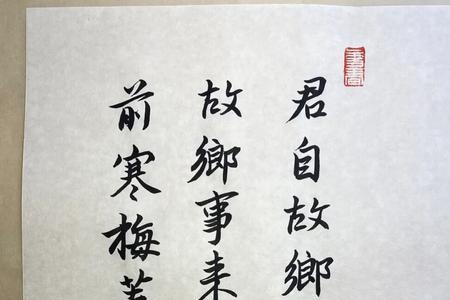 君自故鄉
故鄉事来
前寒梅